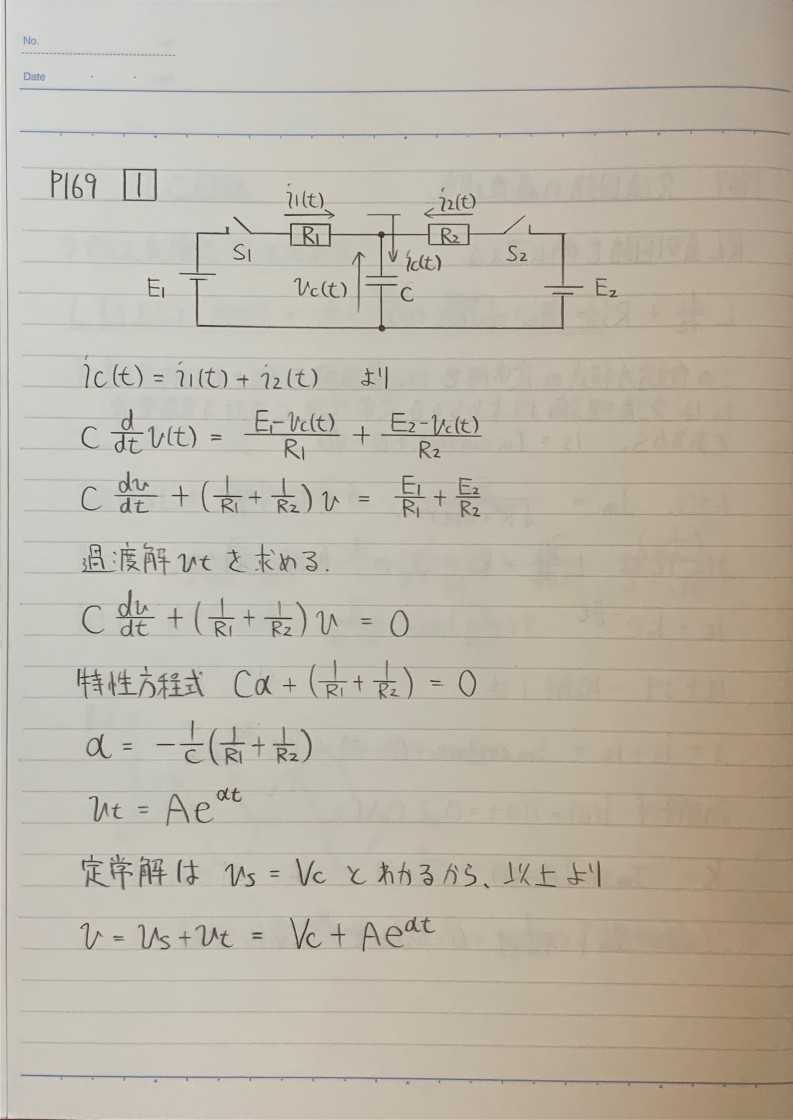 No.
Date
P169 1
i1(t) i2(t)
S1 R1 R2 S2
E1 vc(t) ic(t) C E2
ic(t) = i1(t) + i2(t) より
C d/dt v(t) = (E1-vc(t))/R1 + (E2-vc(t))/R2
C dv/dt + (1/R1 + 1/R2) v = E1/R1 + E2/R2
過渡解 vt を求める.
C dv/dt + (1/R1 + 1/R2) v = 0
特性方程式 Cα + (1/R1 + 1/R2) = 0
α = -1/C (1/R1 + 1/R2)
vt = Ae^αt
定常解は vs = Vc とわかるから、以上より
v = vs + vt = Vc + Ae^αt